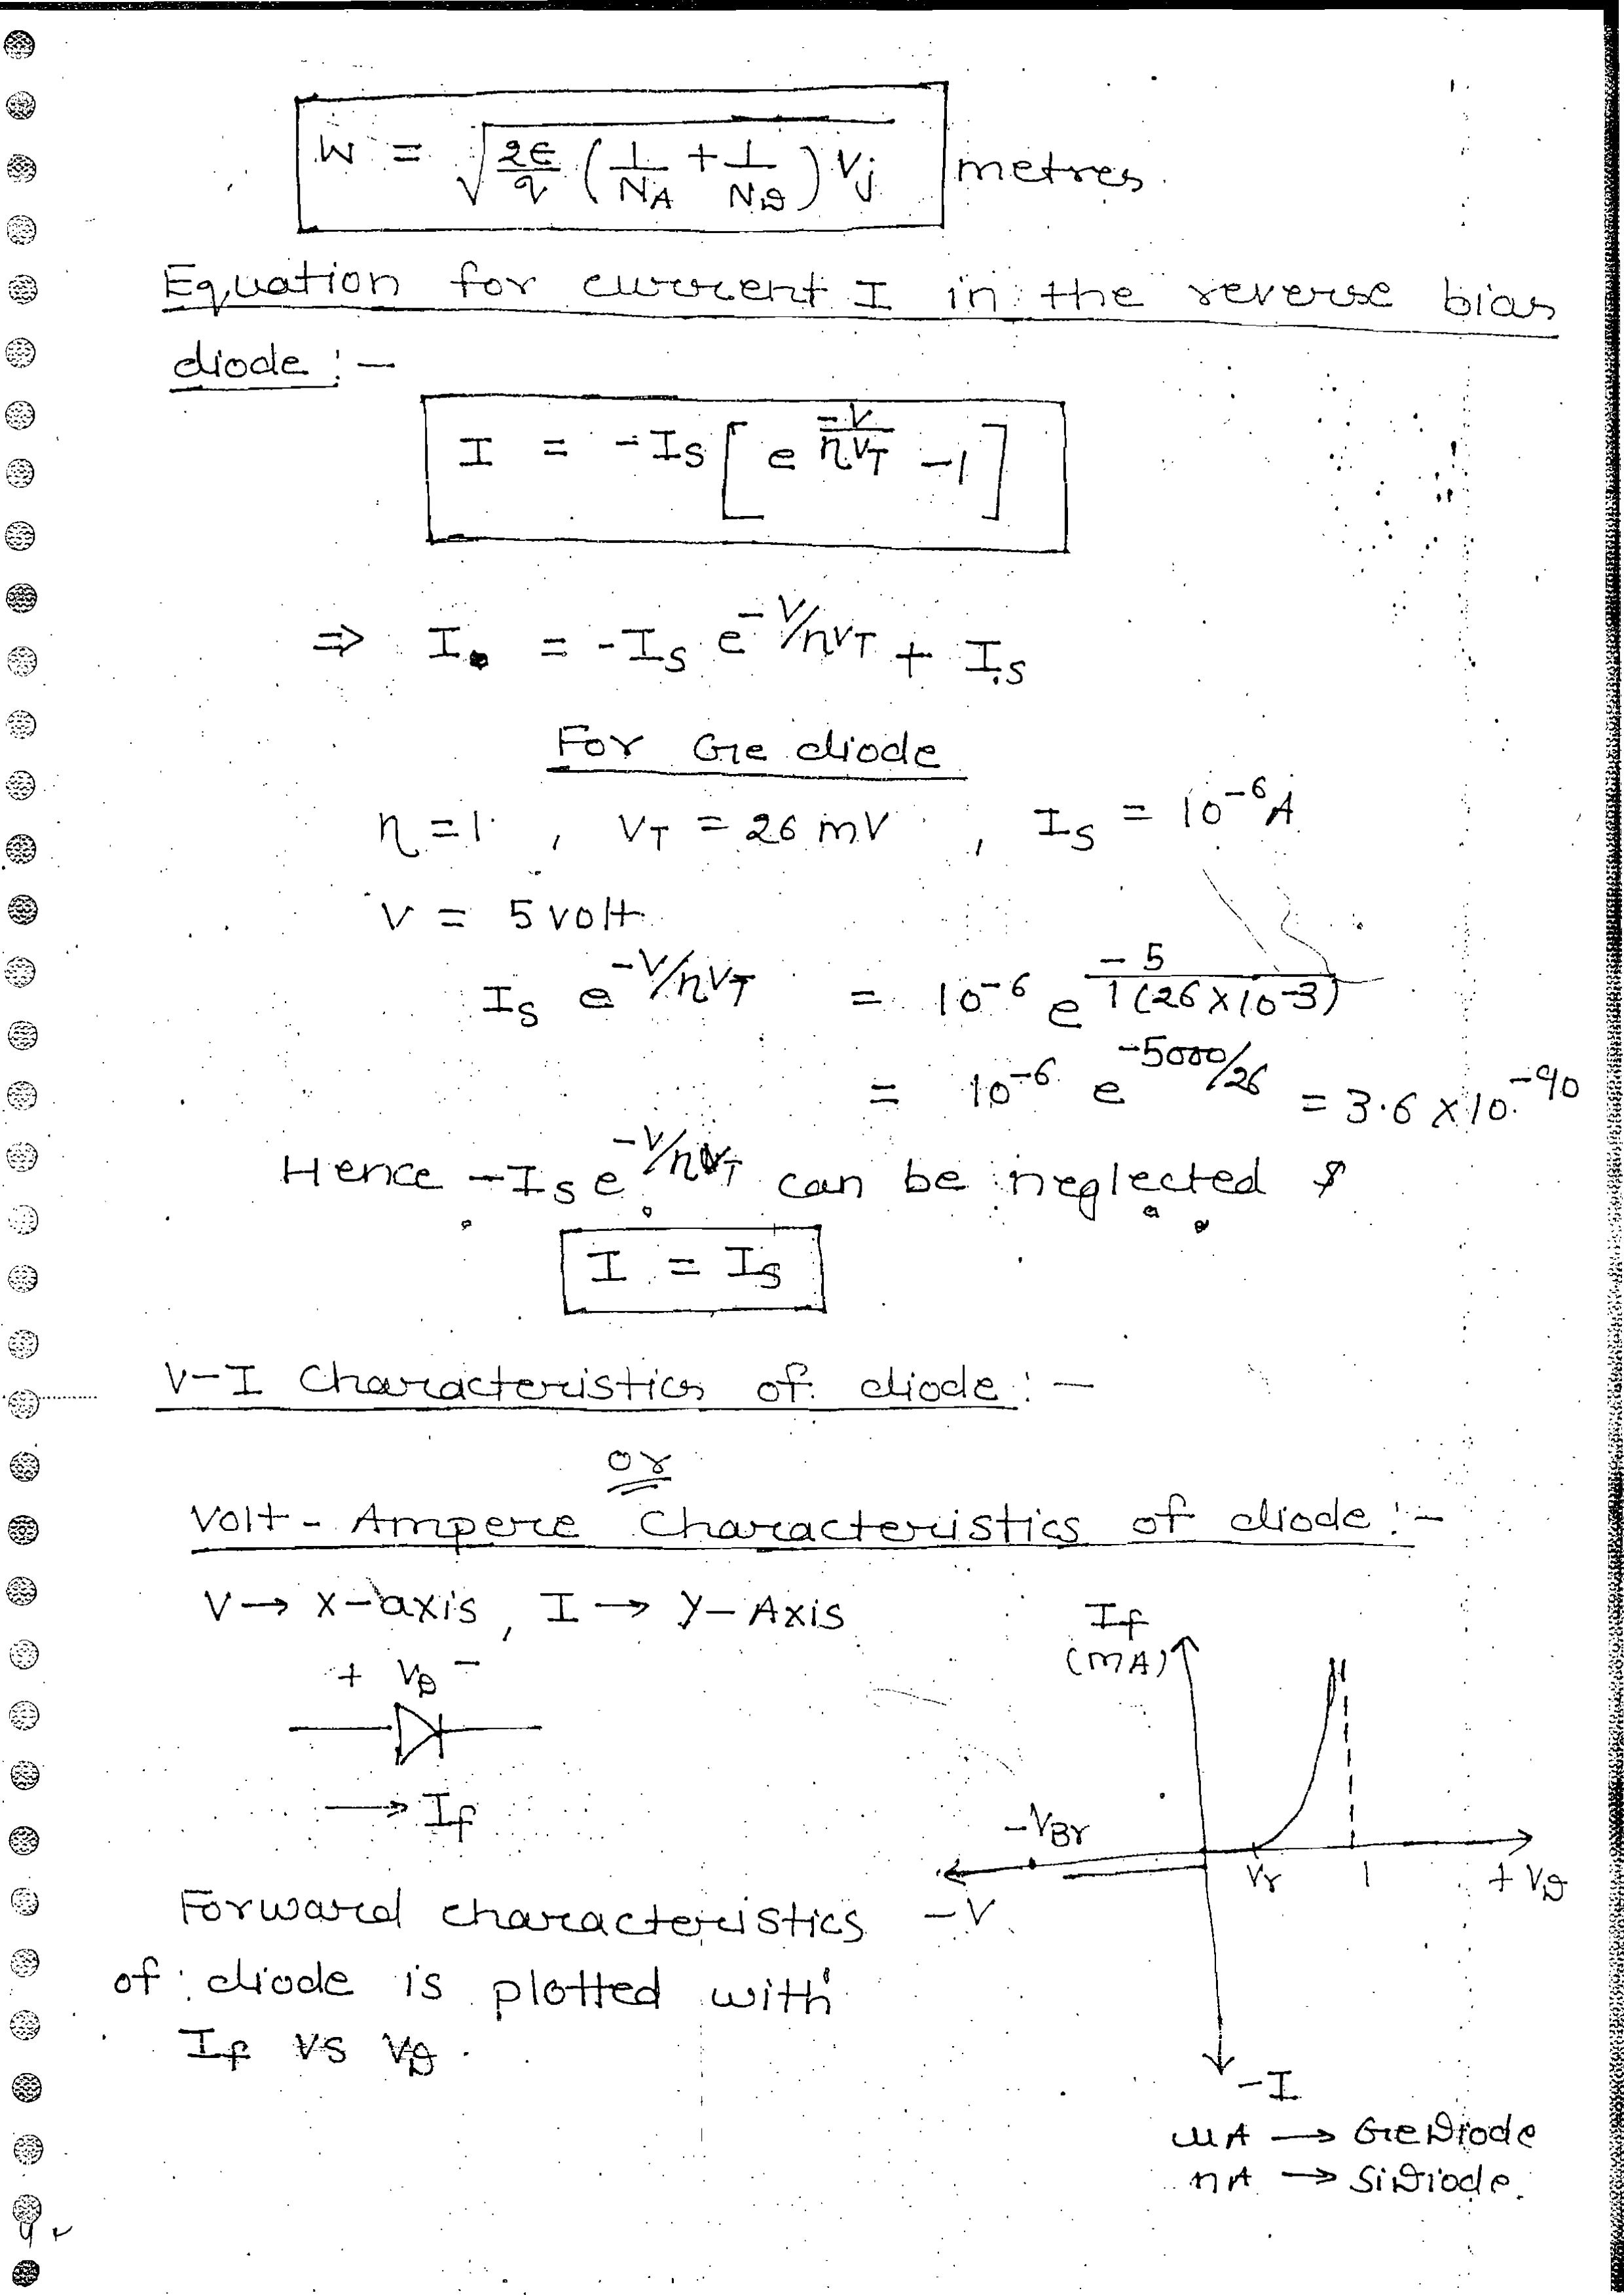 W = √(2ϵ/q (1/N_A + 1/N_D) V_j) metres
Equation for current I in the reverse bias
diode :-
I = -I_S [e^(-V/ηV_T) -1]
⇒ I = -I_S e^(-V/ηV_T) + I_S
For Ge diode
η = 1 , V_T = 26 mV , I_S = 10^-6 A
V = 5 volt
I_S e^(-V/ηV_T) = 10^-6 e^(-5/1(26×10^-3))
= 10^-6 e^(-5000/26) = 3.6 × 10^-90
Hence -I_S e^(-V/ηV_T) can be neglected &
I = I_S
V-I Characteristics of diode :-
or
Volt-Ampere Characteristics of diode :-
V → x-axis, I → y-Axis
+ V_D -
→ I_f
Forward characteristics
of diode is plotted with
I_f VS V_D.
I_f
(mA)
-V_Br
V_γ 1 + V_D
-V
-I
μA → Ge Diode
nA → Si Diode.